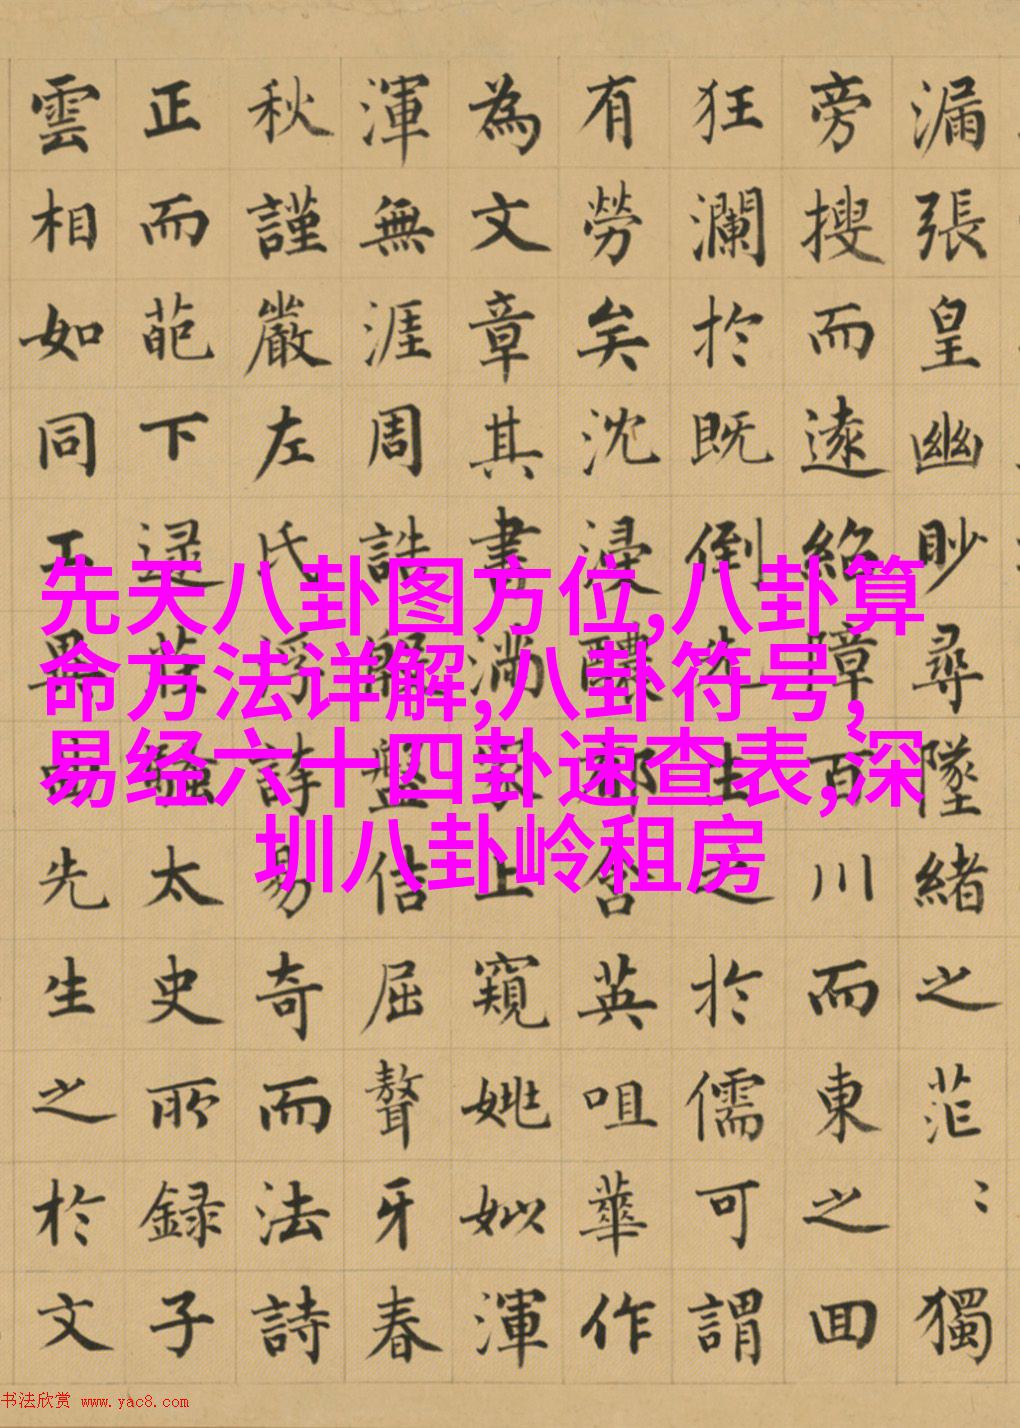 漏張皇幽眇尋墜緒之茫〻獨
旁搜而遠紹障百川而東之回
狂瀾於既倒先生之於儒可謂
有勞矣沈浸醲郁含英咀華作
為文章其書滿家上窺姚姒渾
渾無涯周誥殷盤信屈聱牙春
秋謹嚴左氏浮誇易奇而法詩
正而葩下逮莊騷太史所録子
雲相如同工異曲先生之於文
先天八卦图方位,八卦算
命方法详解,八卦符号,
易经六十四卦速查表,深
圳八卦岭租房
书法欣赏 www.yac8.com